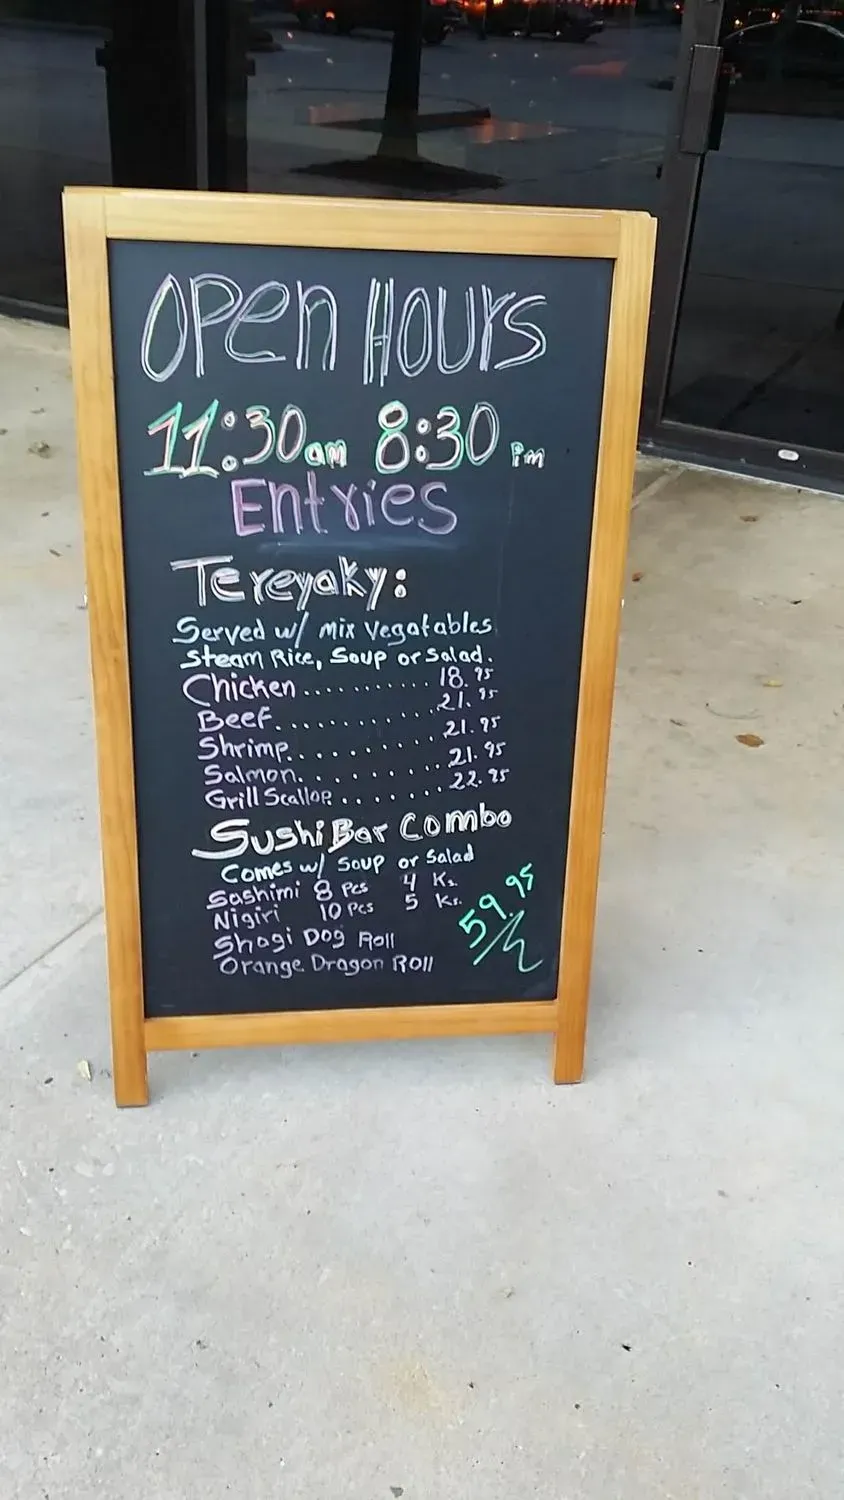 Open Hours
11:30 am 8:30 pm
Entries
Tereyaky:
Served w/ Mix Vegatables
Steam Rice, Soup or Salad.
Chicken........... 18.95
Beef............ 21.95
Shrimp.......... 21.95
Salmon......... 21.95
Grill Scallop....... 22.95
Sushi Bar Combo
Comes w/ Soup or Salad
Sashimi 8 Pcs 4 Ks.
Nigiri 10 Pcs 5 Ks.
Shogi Dog Roll
Orange Dragon Roll
59.95